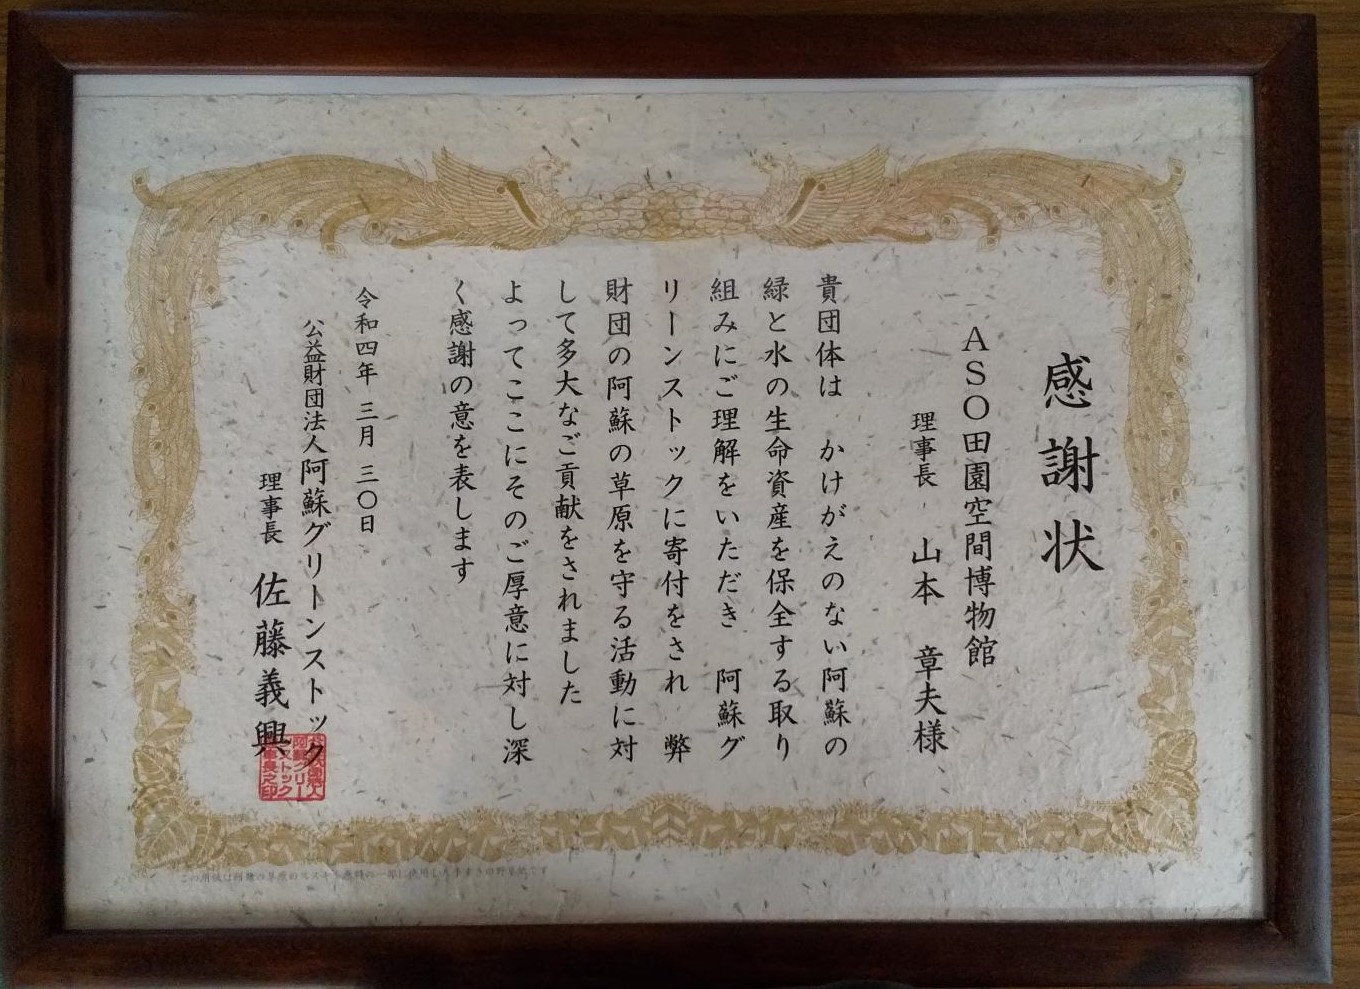 感謝状
ASO田園空間博物館
理事長 山本 章夫様
貴団体は かけがえのない阿蘇の
緑と水の生命資産を保全する取り
組みにご理解をいただき 阿蘇グ
リーンストックに寄付をされ 弊
財団の阿蘇の草原を守る活動に対
して多大なご貢献をされました
よってここにそのご厚意に対し深
く感謝の意を表します
令和四年 三月 三〇日
公益財団法人阿蘇グリーンストック
理事長 佐藤義興